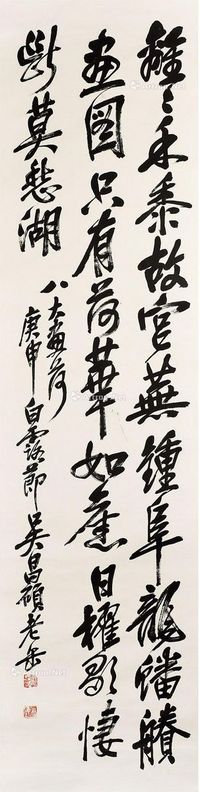 離〻禾黍故宮蕪鍾阜龍蟠賸
畫圖只有荷華如舊日櫂歌悽
斷莫愁湖
八大畫荷
庚申白露節吳昌碩老缶